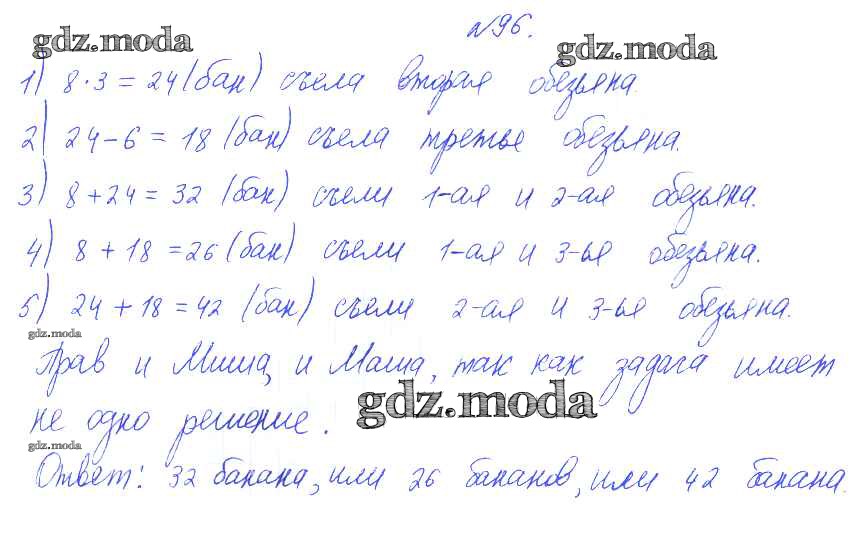 №96.
gdz.moda gdz.moda
1) 8·3=24(бан) съела вторая обезьяна.
2) 24-6=18 (бан) съела третье обезьяна.
3) 8+24=32 (бан) съели 1-ая и 2-ая обезьяна.
4) 8+18=26(бан) съели 1-ая и 3-ья обезьяна.
5) 24+18=42 (бан) съели 2-ая и 3-ья обезьяна.
gdz.moda
Прав и Миша, и Маша, так как задача имеет
gdz.moda
не одно решение.
gdz.moda
Ответ: 32 банана, или 26 бананов, или 42 банана.